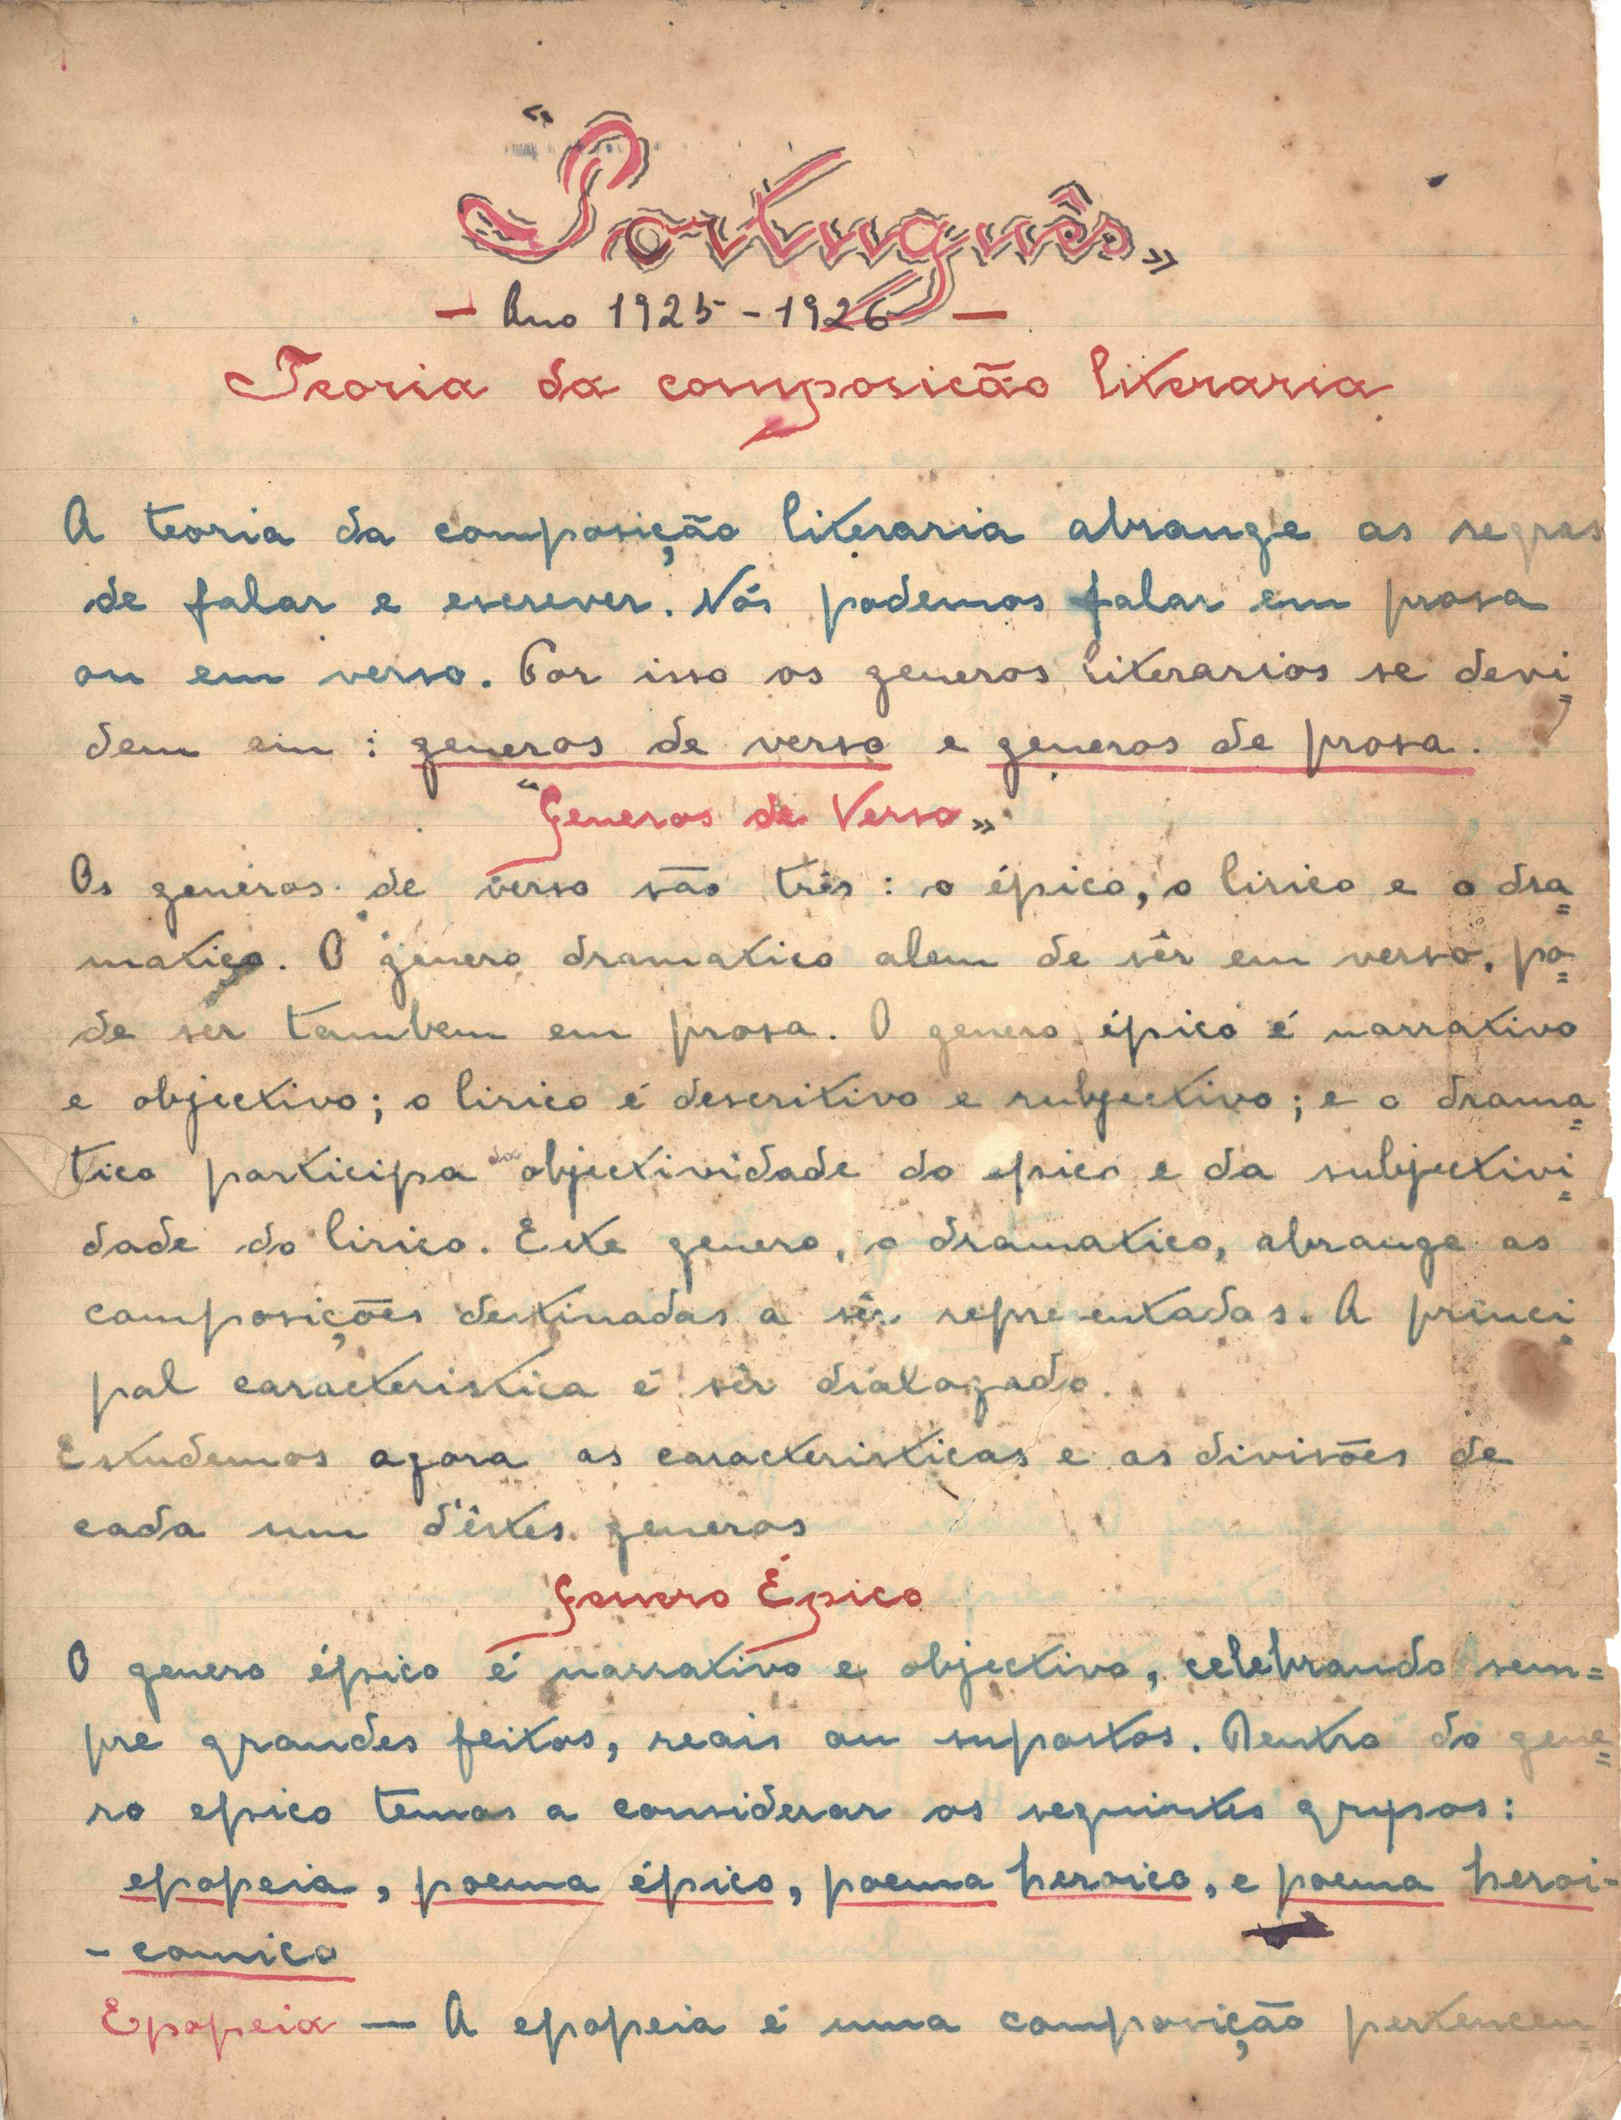 "Português"
- Ano 1925 - 1926 -
Teoria da composicão literaria
A teoria da composição literaria abrange as regras
de falar e escrever. Nós podemos falar em prosa
ou em verso. Por isso os generos literarios se devi=
dem em : generos de verso e generos de prosa.
"Generos de Verso"
Os generos de verso são três : o épico, o lirico e o dra=
matico. O genero dramatico alem de sêr em verso, po=
de sêr tambem em prosa. O genero épico é narrativo
e objectivo; o lirico é descritivo e subjectivo; e o drama=
tico participa da objectividade do epico e da subjectivi=
dade do lirico. Este genero, o dramatico, abrange as
composições destinadas a sêr representadas. A princi=
pal caracteristica é sêr dialogado.
Estudemos agora as caracteristicas e as divisões de
cada um d'êstes generos
Genero Épico
O genero épico é narrativo e objectivo, celebrando sem=
pre grandes feitos, reais ou supostos. Dentro do gene=
ro epico temos a considerar os seguintes grupos:
epopeia, poema épico, poema heroico, e poema heroi-
- comico
Epopeia — A epopeia é uma composição pertencen=